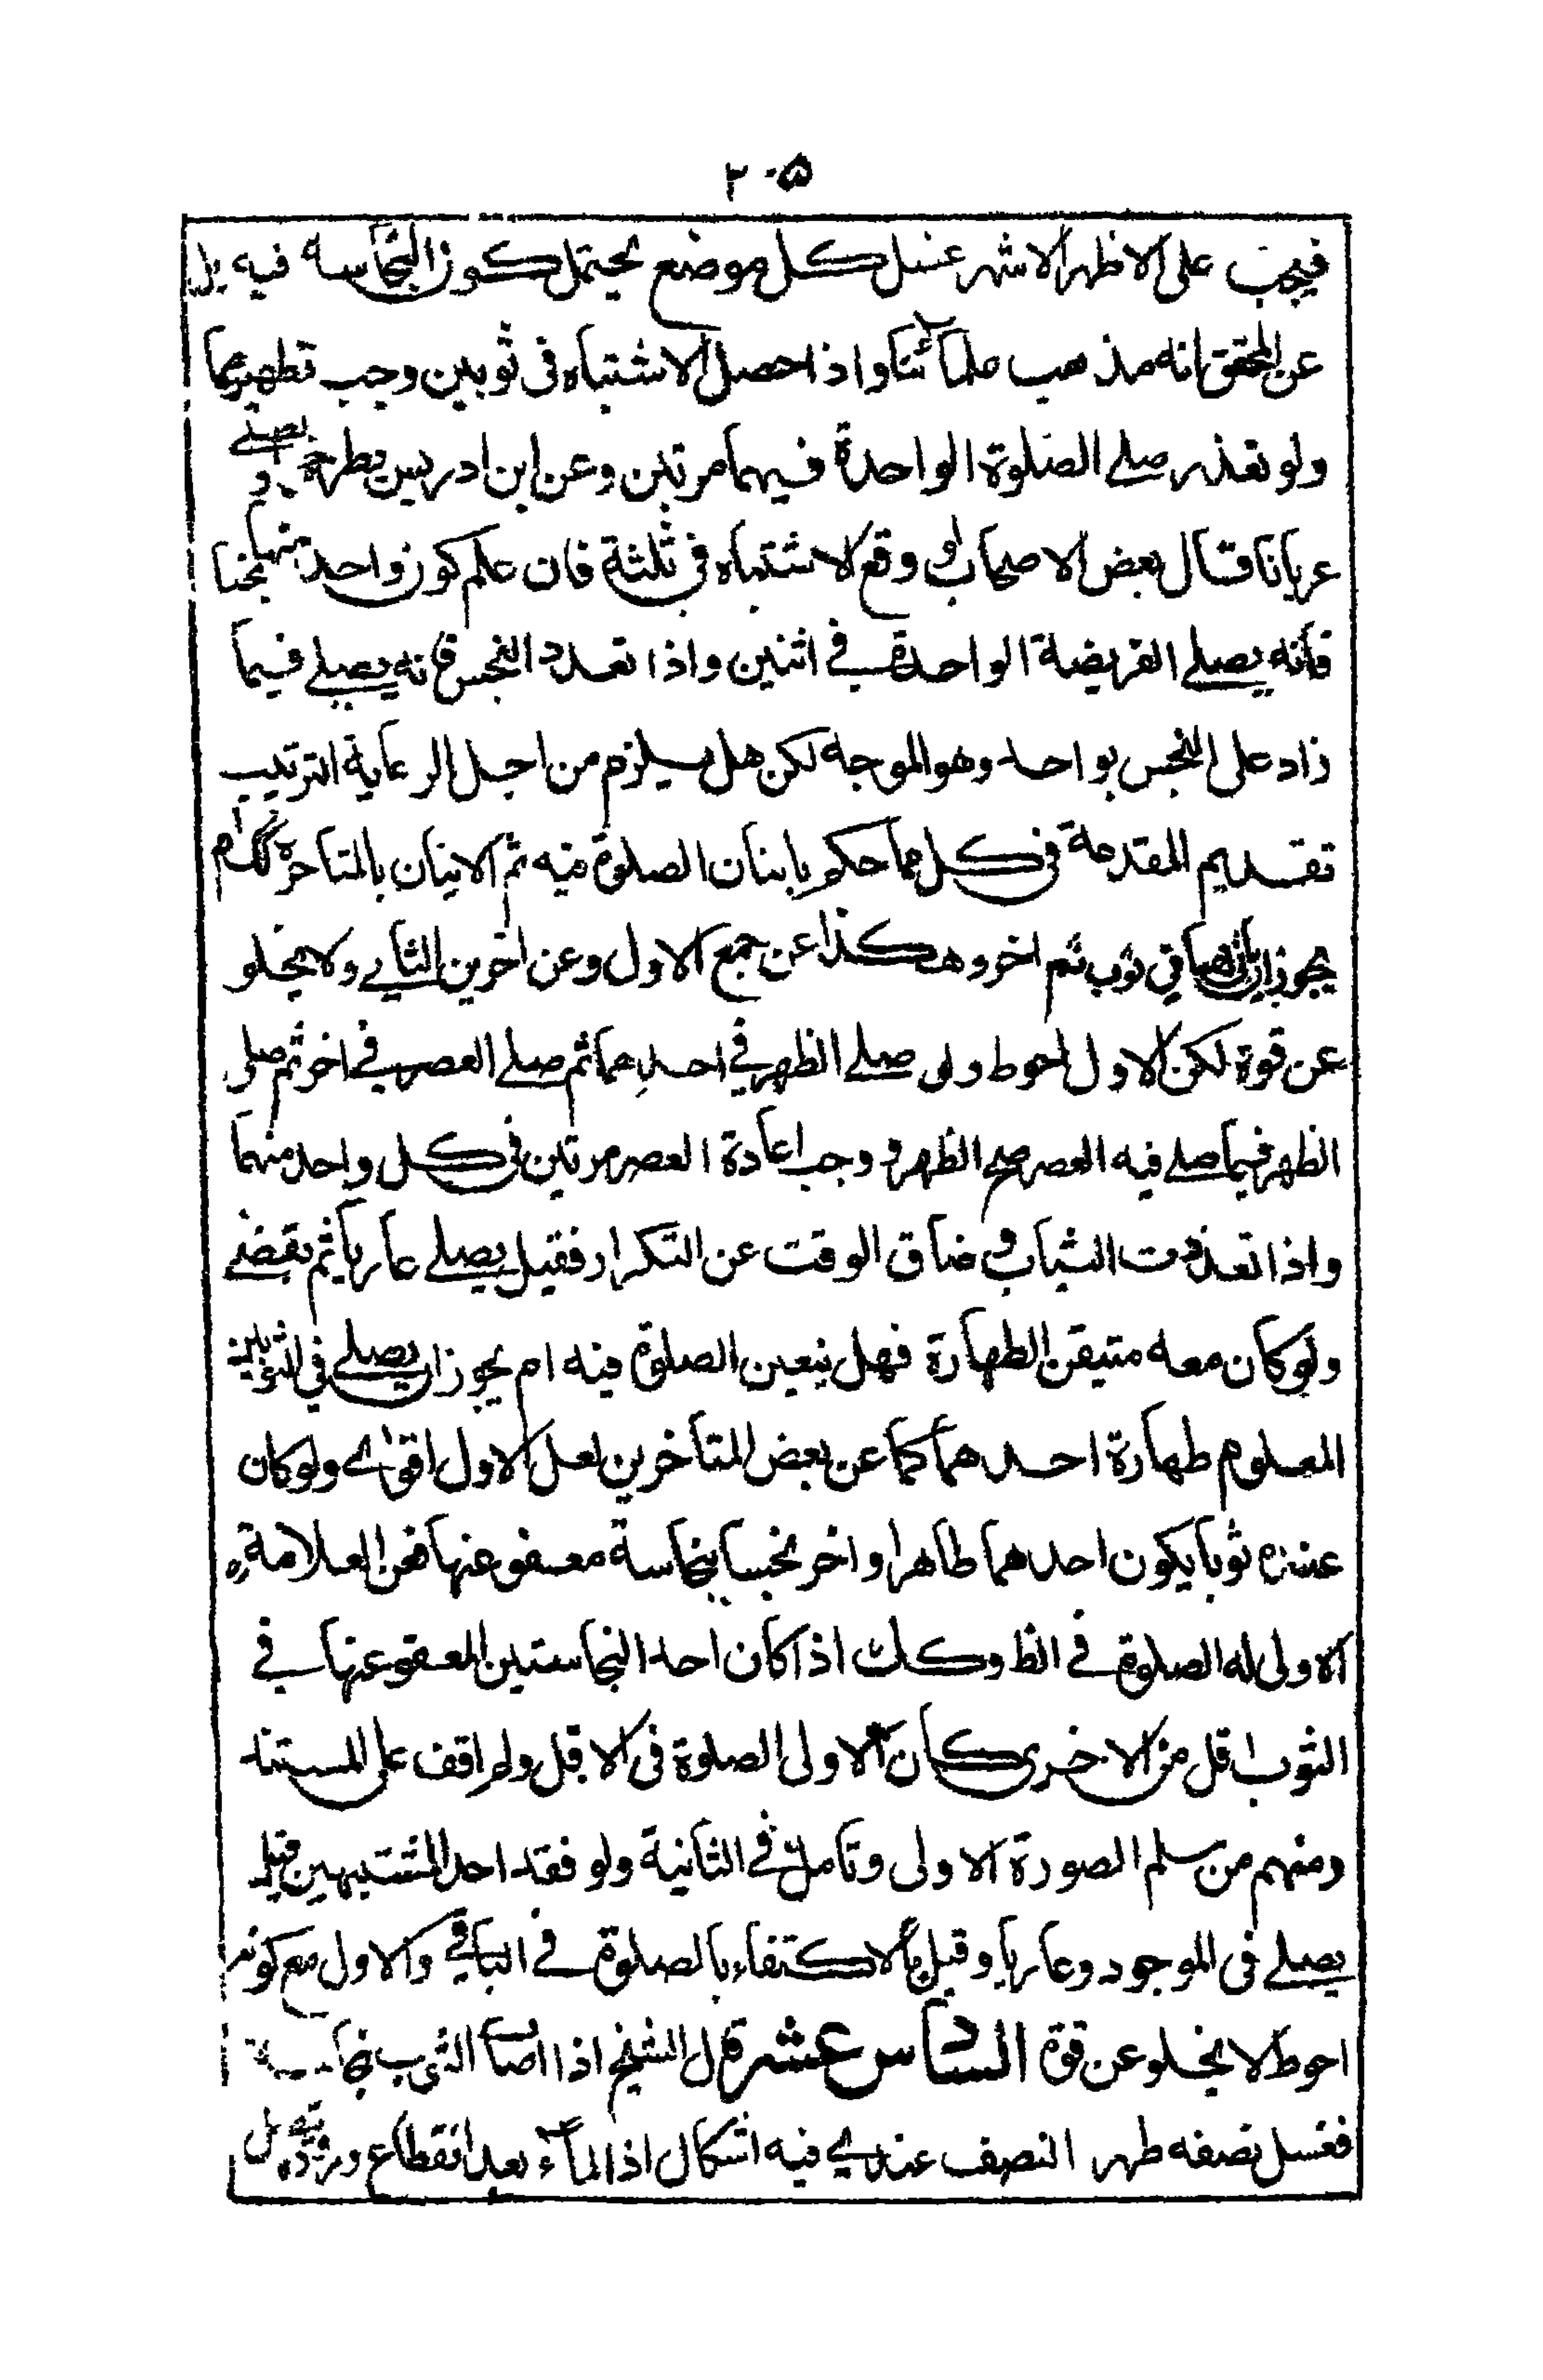 ٢٠۵
فيجب على الاظهر الاشهر غسل كل موضع يحتمل كون النجاسة فيه بل
عن المحقق انه مذهب علمائنا واذا حصل الاشتباه فى ثوبين وجب تطهيرهما
ولو تعذر صلے الصلوة الواحدة فيهما مرتين وعن ابن ادريس يطرح و يصلے
عريانا قال بعض الاصحاب لو وقع الاشتباه فى ثلثة فان علم كون واحد منها نجسا
فانه يصلے الفريضة الواحدة فے اثنين واذا تعدد النجس فانه يصلے فيما
زاد على النجس بواحد وهو الموجه لكن هل يلزم من اجل الرعاية الترتيب
تقديم المقدمة فى كل مما حكم باتيان الصلوة فيه ثم الاتيان بالمتاخرة كك ام
يجوز اتيانهما في ثوب ثم اخر وهكذا عن جمع الاول وعن اخرين الثاني ولا يخلو
عن قوة لكن الاول احوط ولو صلے الظهر فے احدهما ثم صلے العصر فے اخر ثم صلى
الظهر فيما صلے فيه العصر صح الظهر و وجب اعادة العصر مرتين فى كل واحد منهما
واذا تعددت الثياب و ضاق الوقت عن التكرار فقيل يصلے عاريا ثم يقضے
ولو كان معه متيقن الطهارة فهل يتعين الصلوة فيه ام يجوز ان يصلے في الثوبين
المعلوم طهارة احدهما كما عن بعض المتأخرين لعل الاول اقوى ولو كان
عنده ثوبا يكون احدهما طاهرا واخر نجسا بنجاسة معفو عنها فعن العلامة ره
الاولى له الصلوة فے الط وكك اذا كان احد النجاستين المعفو عنها فے
الثوب اقل من الاخرى كان الاولى الصلوة فى الاقل ولم اقف على المستند
ومنهم من سلم الصورة الاولى وتامل فے الثانية ولو فقد احد المشتبهين قيل
يصلے فى الموجود وعاريا وقيل بالاكتفاء بالصلوة فے الباقي والاول مع كونه
احوط لا يخلو عن قوة السادس عشر قال الشيخ اذا اصاب الثوب نجاسة
فغسل نصفه طهر النصف عندي فيه اشكال اذ الماء بعد انقطاع وروده